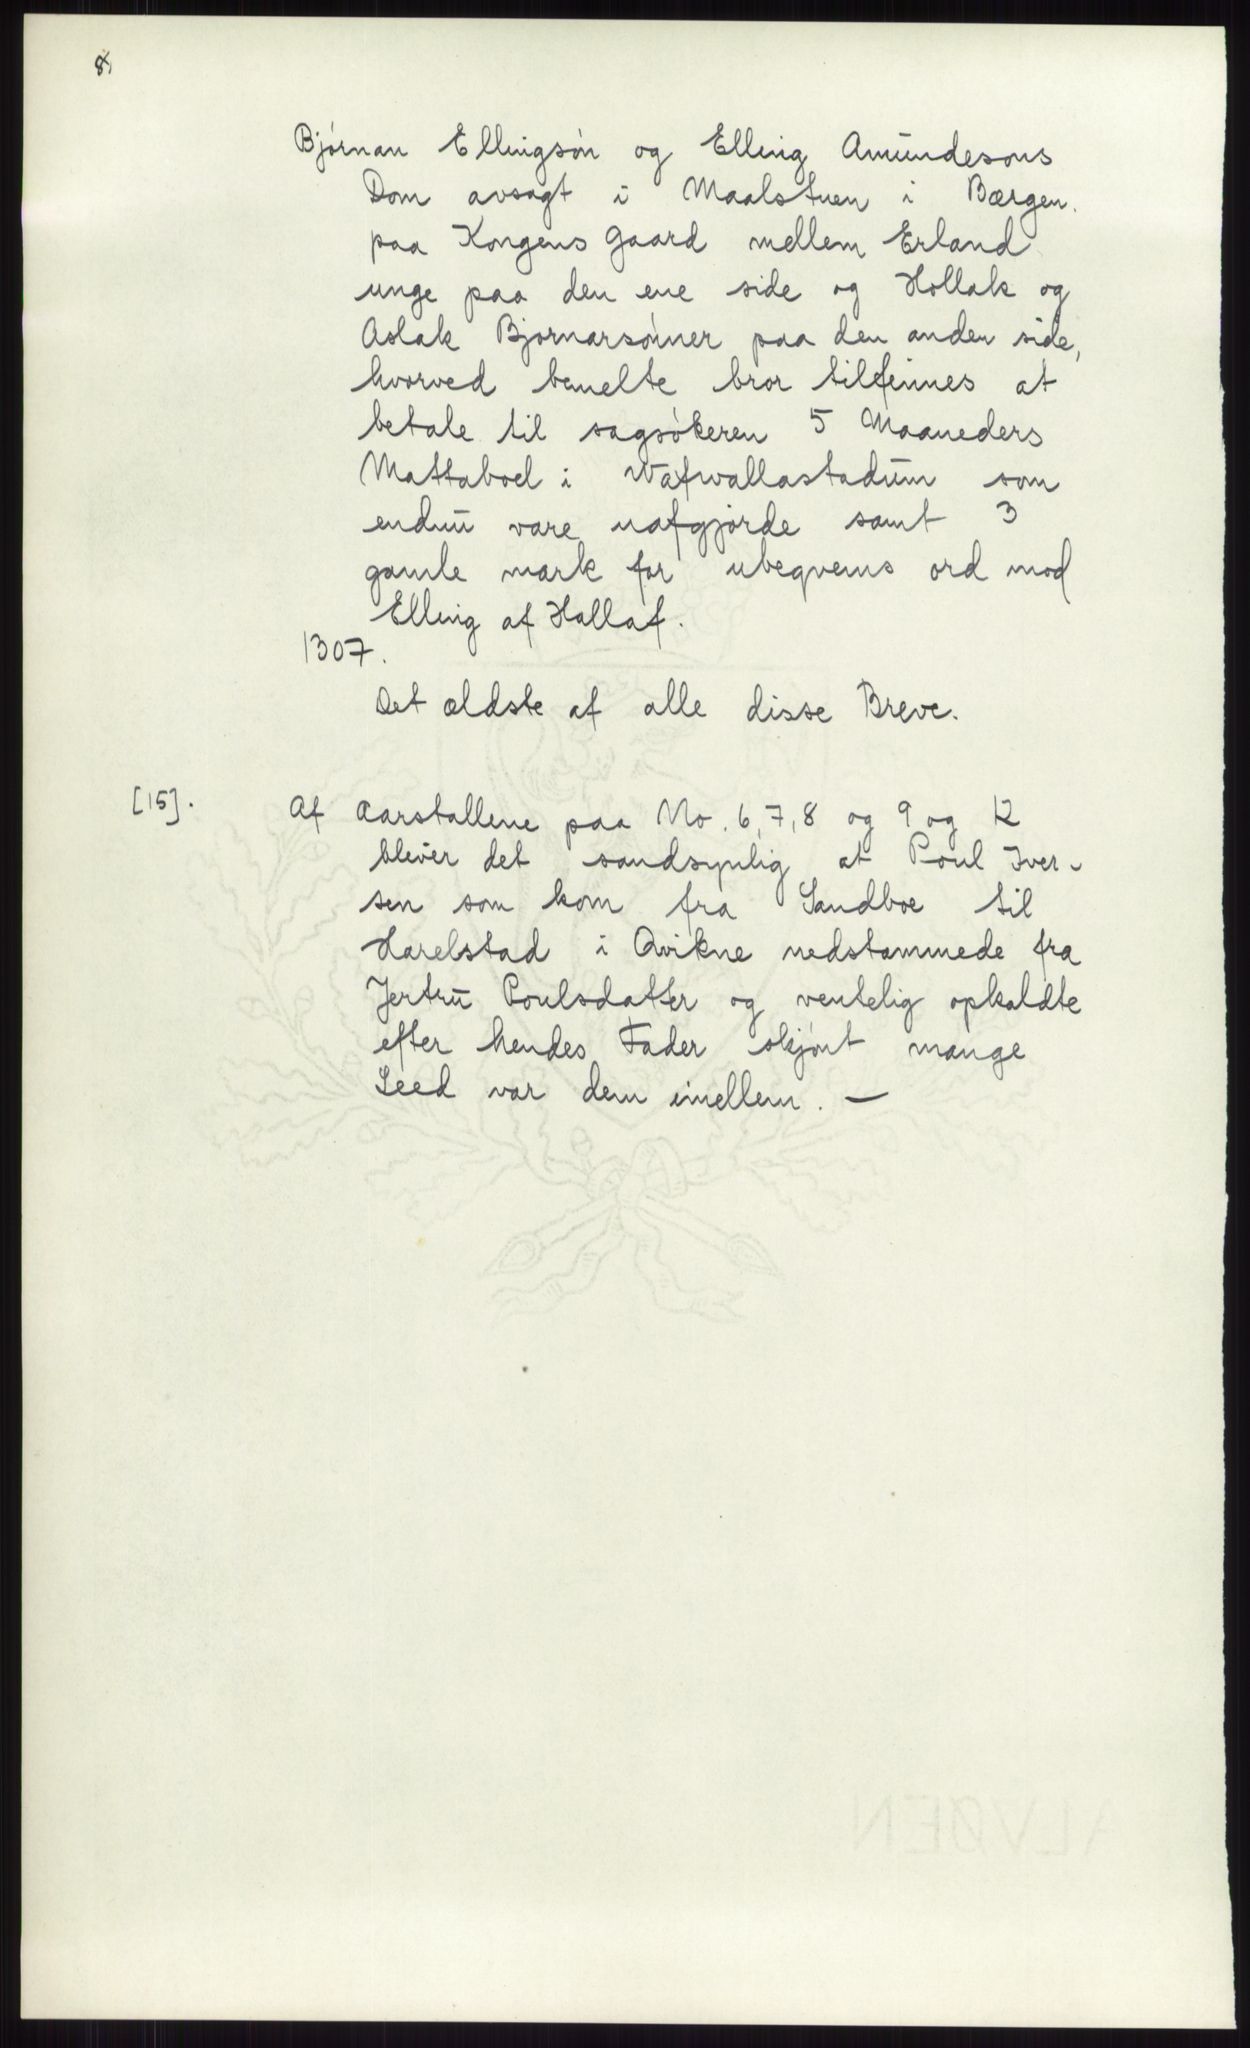 8)
Bjórnan Ellingsón og Elling Amündesons
Dom avsagt i Maalstuen i Bærgen.
paa Kongens Gaard mellem Erland
unge paa den ene side og Hollak og
Aslak Bjornarsónner paa den anden side,
hvorved bemelte bror tilfinnes at
betale til sagsókeren 5 Maaneders
Mattaboel i Vafvallastadüm som
endnü vare uafgjórde samt 3
gamle mark for ubeqvems ord mod
Elling af Hallaf.
1307.
Det ældste af alle disse Breve.
[15]. Af Aarstallene paa No. 6, 7, 8 og 9 og 12
blever det sandsynlig at Poul Iver-
sen som kom fra Sandboe til
Harelstad i Qvikne nedstammede fra
Jertrü Poulsdatter og ventelig opkaldte
efter hendes Fader skjónt mange
Leed var dem imellem. —
ALVØEN